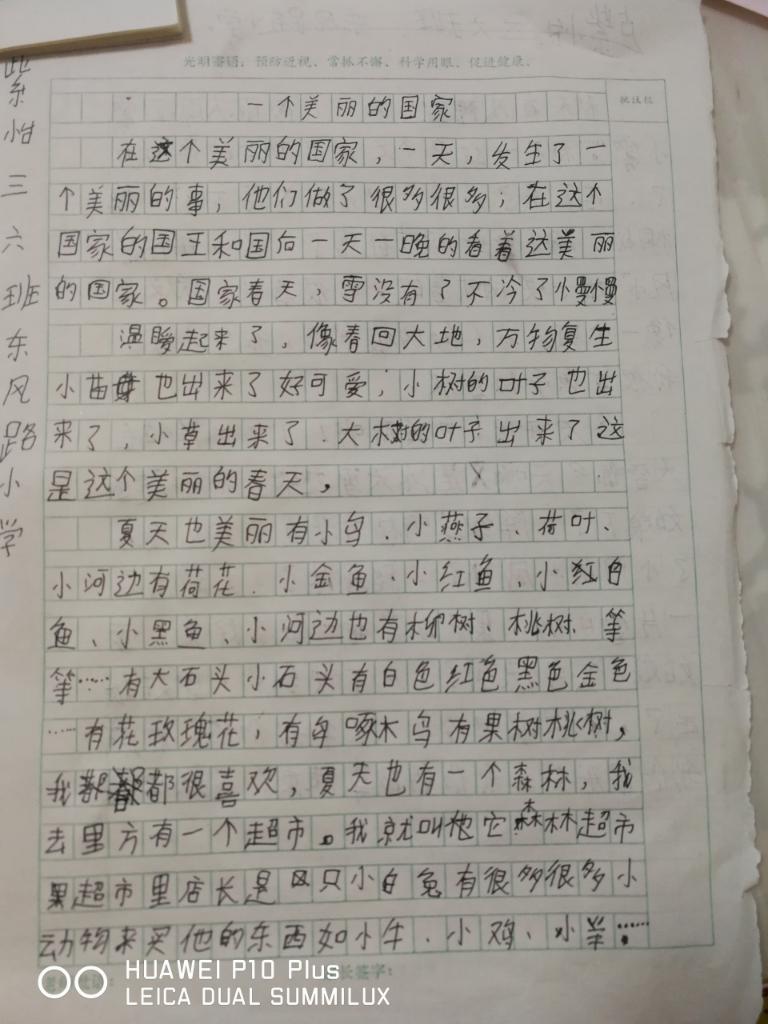 光明寄语：预防近视、常抓不懈、科学用眼、促进健康。
批注栏
紫怡三六班东风路小学
一个美丽的国家
在这个美丽的国家，一天，发生了一
个美丽的事，他们做了很多很多；在这个
国家的国王和国后一天一晚的看着这美丽
的国家。国家春天，雪没有了不冷了慢慢
温暖起来了，像春回大地，万物复生
小苗芽也出来了好可爱；小树的叶子也出
来了，小草出来了．大树的叶子出来了这
是这个美丽的春天，
夏天也美丽有小鸟、小燕子、荷叶、
小河边有荷花．小金鱼、小红鱼、小红白
鱼、小黑鱼、小河边也有柳树、桃树、等
等……有大石头小石头有白色红色黑色金色
……有花玫瑰花，有啄木鸟有果树桃树，
我都都很喜欢，夏天也有一个森林，我
去里方有一个超市。我就叫他它森林超市
超市里店长是只小白兔有很多很多小
动物来买他的东西如小牛、小鸡、小羊……
长签字：
HUAWEI P10 Plus
LEICA DUAL SUMMILUX